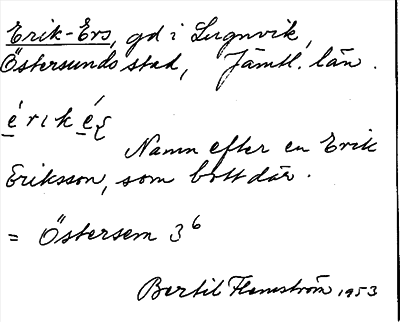 Erik-Ers, gd i Lugnvik,
Östersunds stad, Jämtl. län.
é r ı k é ʂ
Namn efter en Erik
Eriksson, som bott där.
= Östersem 3⁶
Bertil Flemström 1953